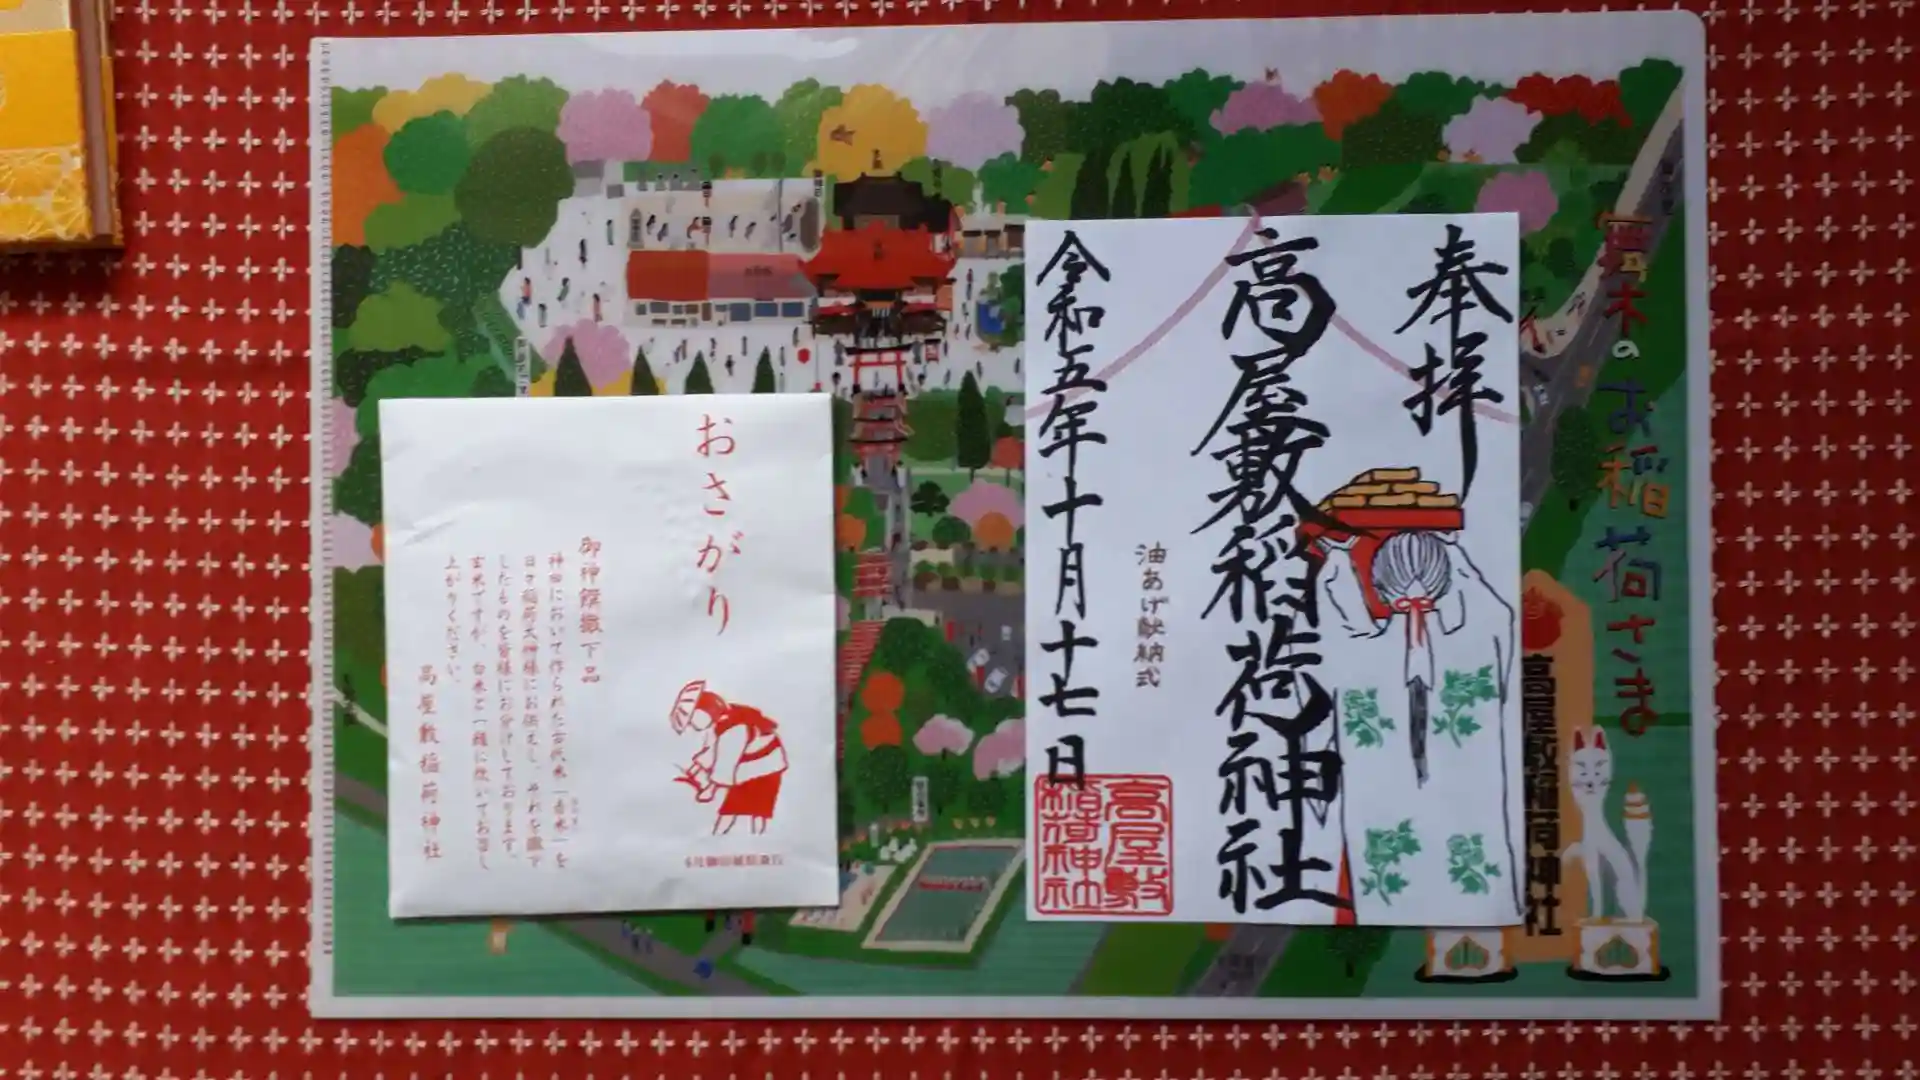 奉拝
高屋敷稲荷神社
油あげ献納式
令和五年十月十七日
高屋敷
稲荷神社
おさがり
御神饌撤下品
神田において作られた古代米「香米」を
日々稲荷大神様にお供えし、それを撤下
したものを皆様にお分けしております。
玄米ですが、白米と一緒に炊いてお召し
上がりください。
高屋敷稲荷神社
木のお稲荷さま
高屋敷稲荷神社